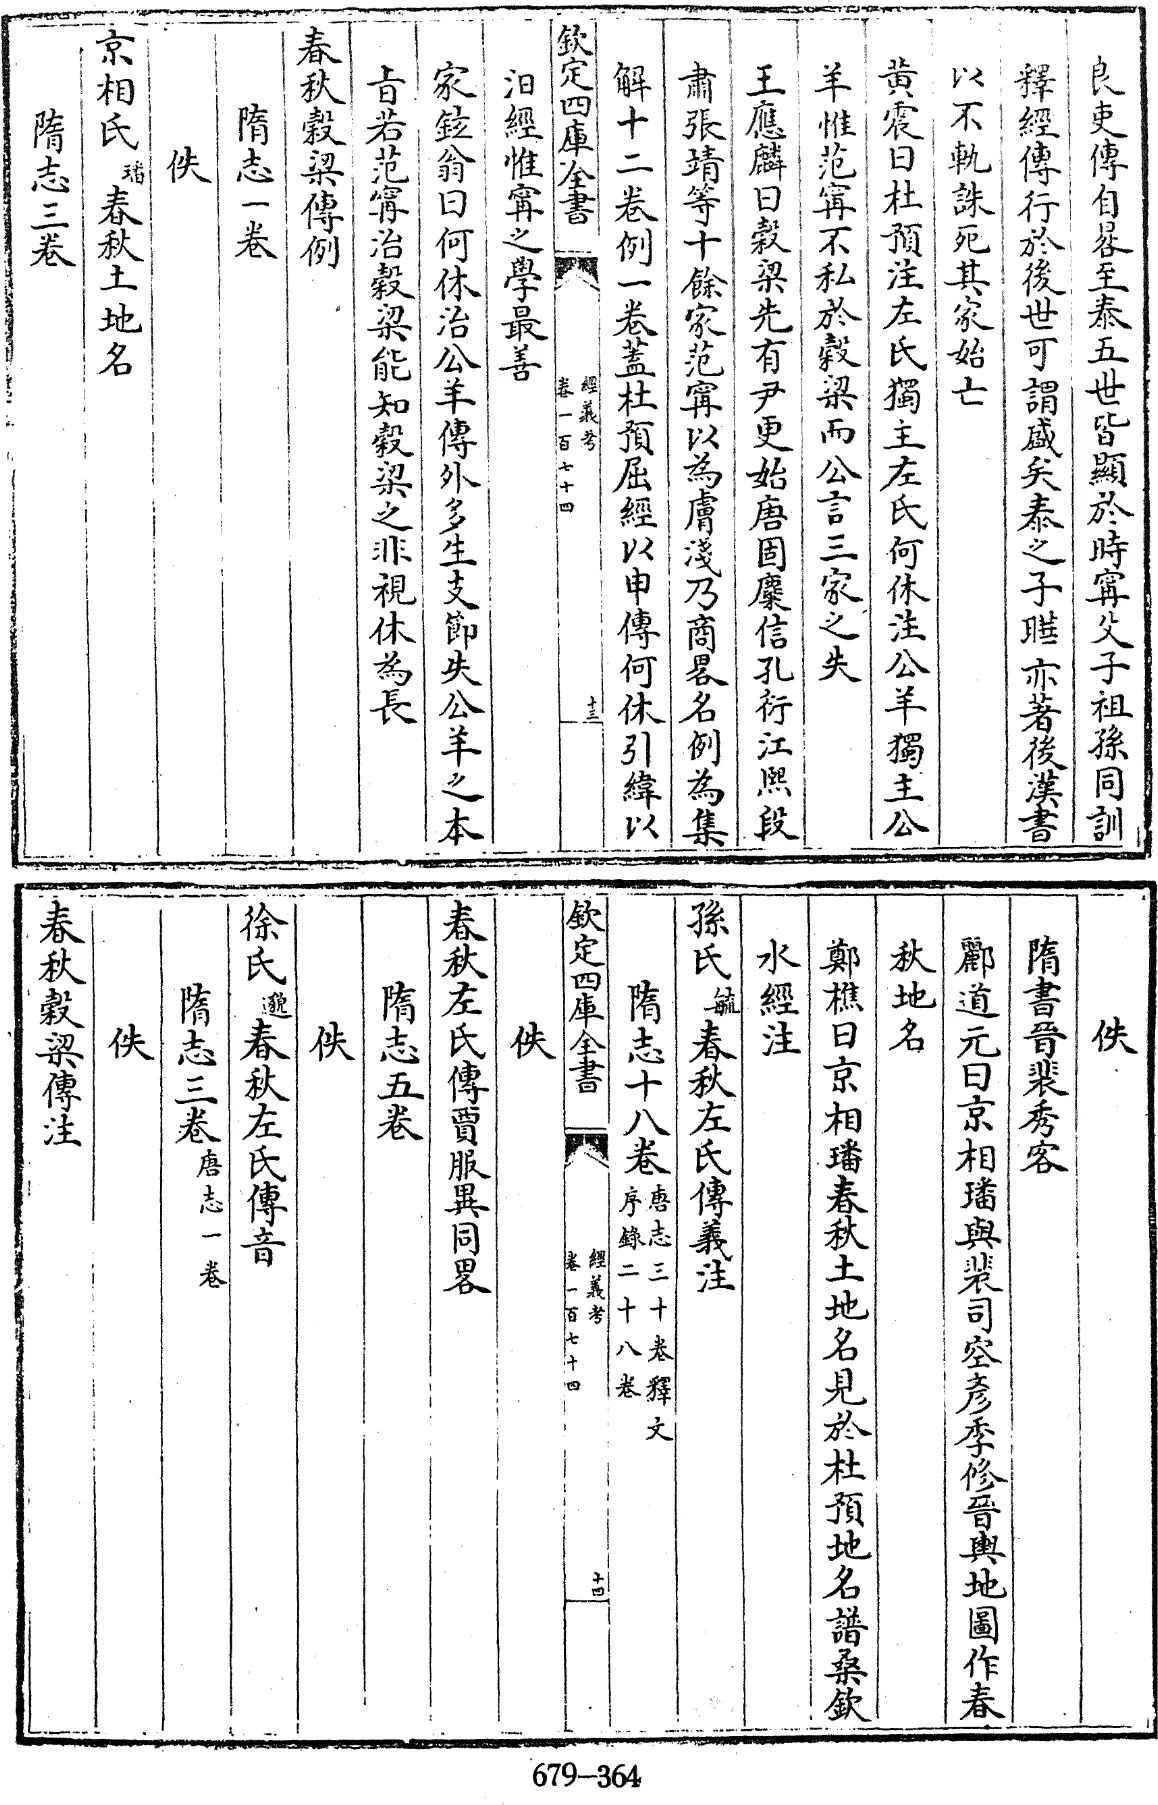 良吏傳自晷至泰五世皆顯於時寗父子祖孫同訓
釋經傳行於後世可謂盛矣泰之子曄亦著後漢書
以不軌誅死其家始亡
黄震曰杜預注左氏獨主左氏何休注公羊獨主公
羊惟范寗不私於穀梁而公言三家之失
王應麟曰穀梁先有尹更始唐固麋信孔衍江熙段
肅張靖等十餘家范寗以為膚淺乃商畧名例為集
解十二卷例一卷蓋杜預屈經以申傳何休引緯以
欽定四庫全書
經義考
卷一百七十四
十三
汨經惟寗之學最善
家鉉翁曰何休治公羊傳外多生支節失公羊之本
㫖若范寗治穀梁能知穀梁之非視休為長
春秋穀梁傳例
隋志一卷
佚
京相氏璠春秋土地名
隋志三卷
佚
隋書晉裴秀客
酈道元曰京相璠與裴司空彥季修晉輿地圖作春
秋地名
鄭樵曰京相璠春秋土地名見於杜預地名譜桑欽
水經注
孫氏毓春秋左氏傳義注
隋志十八卷唐志三十卷釋文
序錄二十八卷
欽定四庫全書
經義考
卷一百七十四
十四
佚
春秋左氏傳賈服異同畧
隋志五卷
佚
徐氏邈春秋左氏傳音
隋志三卷唐志一卷
佚
春秋穀梁傳注
679-364